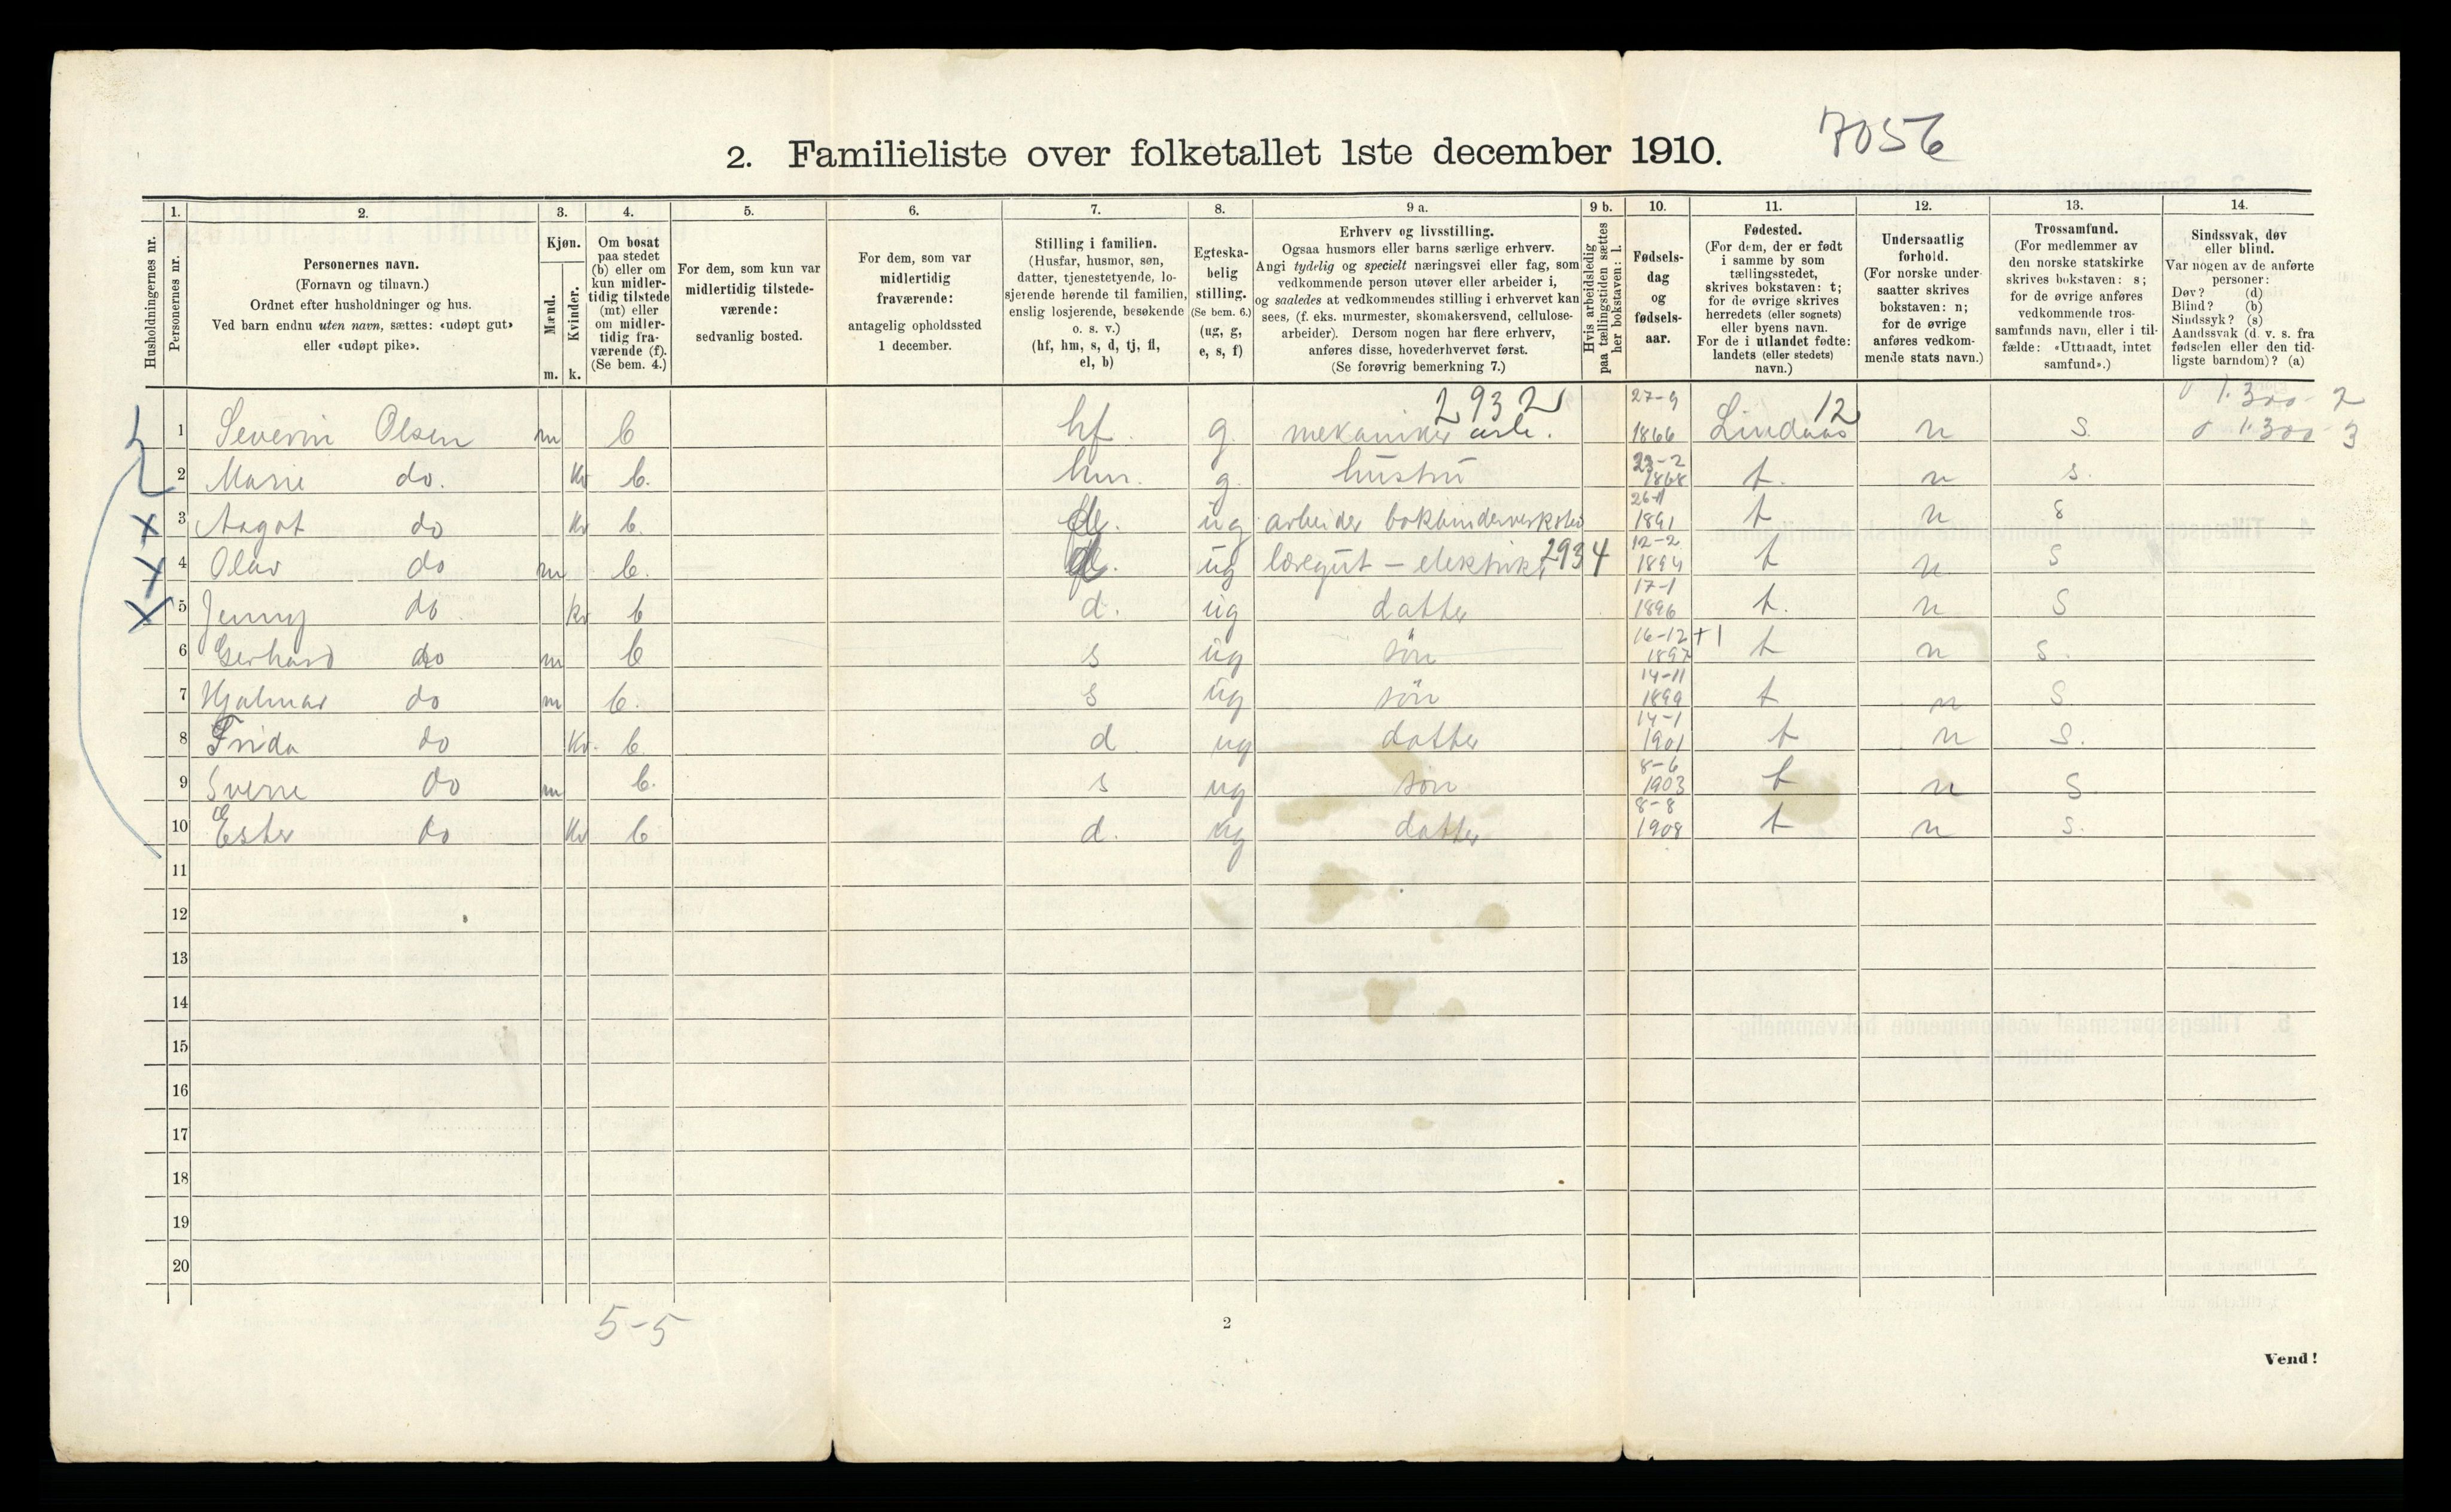 2. Familieliste over folketallet 1ste december 1910.
7056
Husholdningernes nr.
1.
Personernes nr.
2.
Personernes navn.
(Fornavn og tilnavn.)
Ordnet efter husholdninger og hus.
Ved barn endnu uten navn, sættes: «udøpt gut»
eller «udøpt pike».
3.
Kjøn.
Mænd.
Kvinder.
m. k.
4.
Om bosat
paa stedet
(b) eller om
kun midler-
tidig tilstede
(mt) eller
om midler-
tidig fra-
værende (f).
(Se bem. 4.)
5.
For dem, som kun var
midlertidig tilstede-
værende:
sedvanlig bosted.
6.
For dem, som var
midlertidig
fraværende:
antagelig opholdssted
1 december.
7.
Stilling i familien.
(Husfar, husmor, søn,
datter, tjenestetyende, lo-
sjerende hørende til familien,
enslig losjerende, besøkende
o. s. v.)
(hf, hm, s, d, tj, fl,
el, b)
8.
Egteska-
belig
stilling.
(Se bem. 6.)
(ug, g,
e, s, f)
9 a.
Erhverv og livsstilling.
Ogsaa husmors eller barns særlige erhverv.
Angi tydelig og specielt næringsvei eller fag, som
vedkommende person utøver eller arbeider i,
og saaledes at vedkommendes stilling i erhvervet kan
sees, (f. eks. murmester, skomakersvend, cellulose-
arbeider). Dersom nogen har flere erhverv,
anføres disse, hovederhvervet først.
(Se forøvrig bemerkning 7.)
9 b.
Hvis arbeidsledig
paa tællingstiden sættes
her bokstaven: l.
10.
Fødsels-
dag
og
fødsels-
aar.
11.
Fødested.
(For dem, der er født
i samme by som
tællingsstedet,
skrives bokstaven: t;
for de øvrige skrives
herredets (eller sognets)
eller byens navn.
For de i utlandet fødte:
landets (eller stedets)
navn.)
12.
Undersaatlig
forhold.
(For norske under-
saatter skrives
bokstaven: n;
for de øvrige
anføres vedkom-
mende stats navn.)
13.
Trossamfund.
(For medlemmer av
den norske statskirke
skrives bokstaven: s;
for de øvrige anføres
vedkommende tros-
samfunds navn, eller i til-
fælde: «Uttraadt, intet
samfund».)
14.
Sindssvak, døv
eller blind.
Var nogen av de anførte
personer:
Døv? (d)
Blind? (b)
Sindssyk? (s)
Aandssvak (d. v. s. fra
fødselen eller den tid-
ligste barndom)? (a)
2932 27-9 12 0 1.300 - 2
1 Severin Olsen m b hf. g. mekaniker arb. 1866 Lindaas n s. 0 1.300 - 3
2 Marie do. kv b. hm. g. hustru 23-2 1868 t. n s.
3 Aagot do kv b. d. ug arbeider bokbinderverksted 26-11 1891 t n s
4 Olav do m b. ug læregut - elektrik. 2934 12-2 1894 t n s
5 Jenny do kv b d. ug datter 17-1 1896 t. n s
6 Gerhard do m b s ug søn 16-12 1897 +1 t n s.
7 Hjalmar do m b. s ug søn 14-11 1899 t n s
8 Frida do kv. b. d ug datter 14-1 1901 t n s.
9 Sverre do m b. s ug søn 8-6 1903 t n s
10 Ester do kv b d. ug datter 8-8 1908 t n s.
11
12
13
14
15
16
17
18
19
20
5-5
2
Vend!